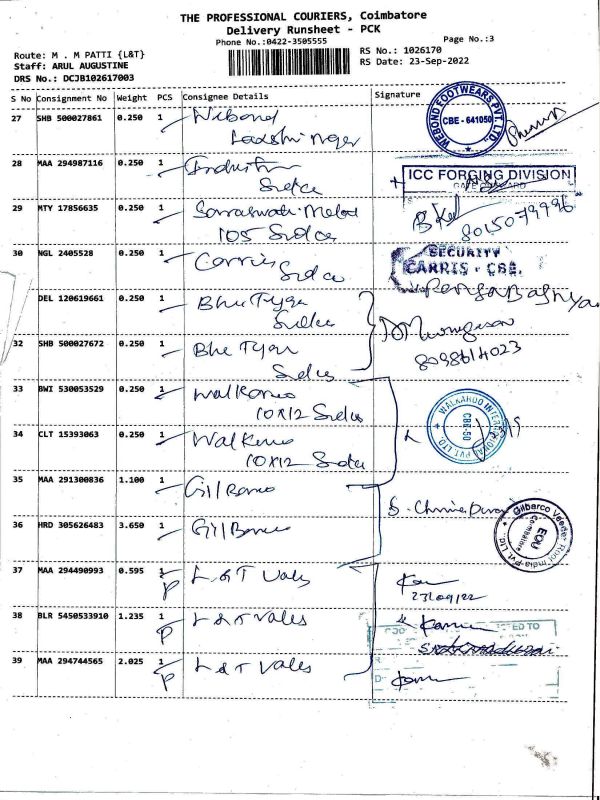 THE PROFESSIONAL COURIERS, Coimbatore
Delivery Runsheet - PCK
Phone No.:0422-3505555
Page No.:3
Route: M . M PATTI {L&T}
RS No.: 1026170
Staff: ARUL AUGUSTINE
RS Date: 23-Sep-2022
DRS No.: DCJB102617003
S No Consignment No Weight PCS Consignee Details Signature
27 SHB 500027861 0.250 1 Webond
WEBOND FOOTWEARS PVT. LTD.
CBE - 641050
28 MAA 294987116 0.250 1
Sidco
ICC FORGING DIVISION
29 MTY 17856635 0.250 1
105 Sidco
8015079996
30 NGL 2405528 0.250 1 Carries
Sidco
SECURITY
CARRIS - CBE.
DEL 120619661 0.250 1 Bhu Tyre
Sidco
32 SHB 500027672 0.250 1 Bhu Tyre
Sidco
8098614023
33 BWI 530053529 0.250 1 Walkaroo
10x12 Sidco
34 CLT 15393063 0.250 1 Walkaroo
10x12 Sidco
WALKAROO INTERNATIONAL PVT. LTD.
CBE-50
35 MAA 291300836 1.100 1 Gilbarco
36 HRD 305626483 3.650 1 Gilbarco
Gilbarco Veeder Root India Pvt. Ltd.
EOU
Coimbatore
37 MAA 294490993 0.595 1 P L & T Vales
23/09/22
38 BLR 5450533910 1.235 1 P L & T Vales
39 MAA 294744565 2.025 1 P L & T Vales